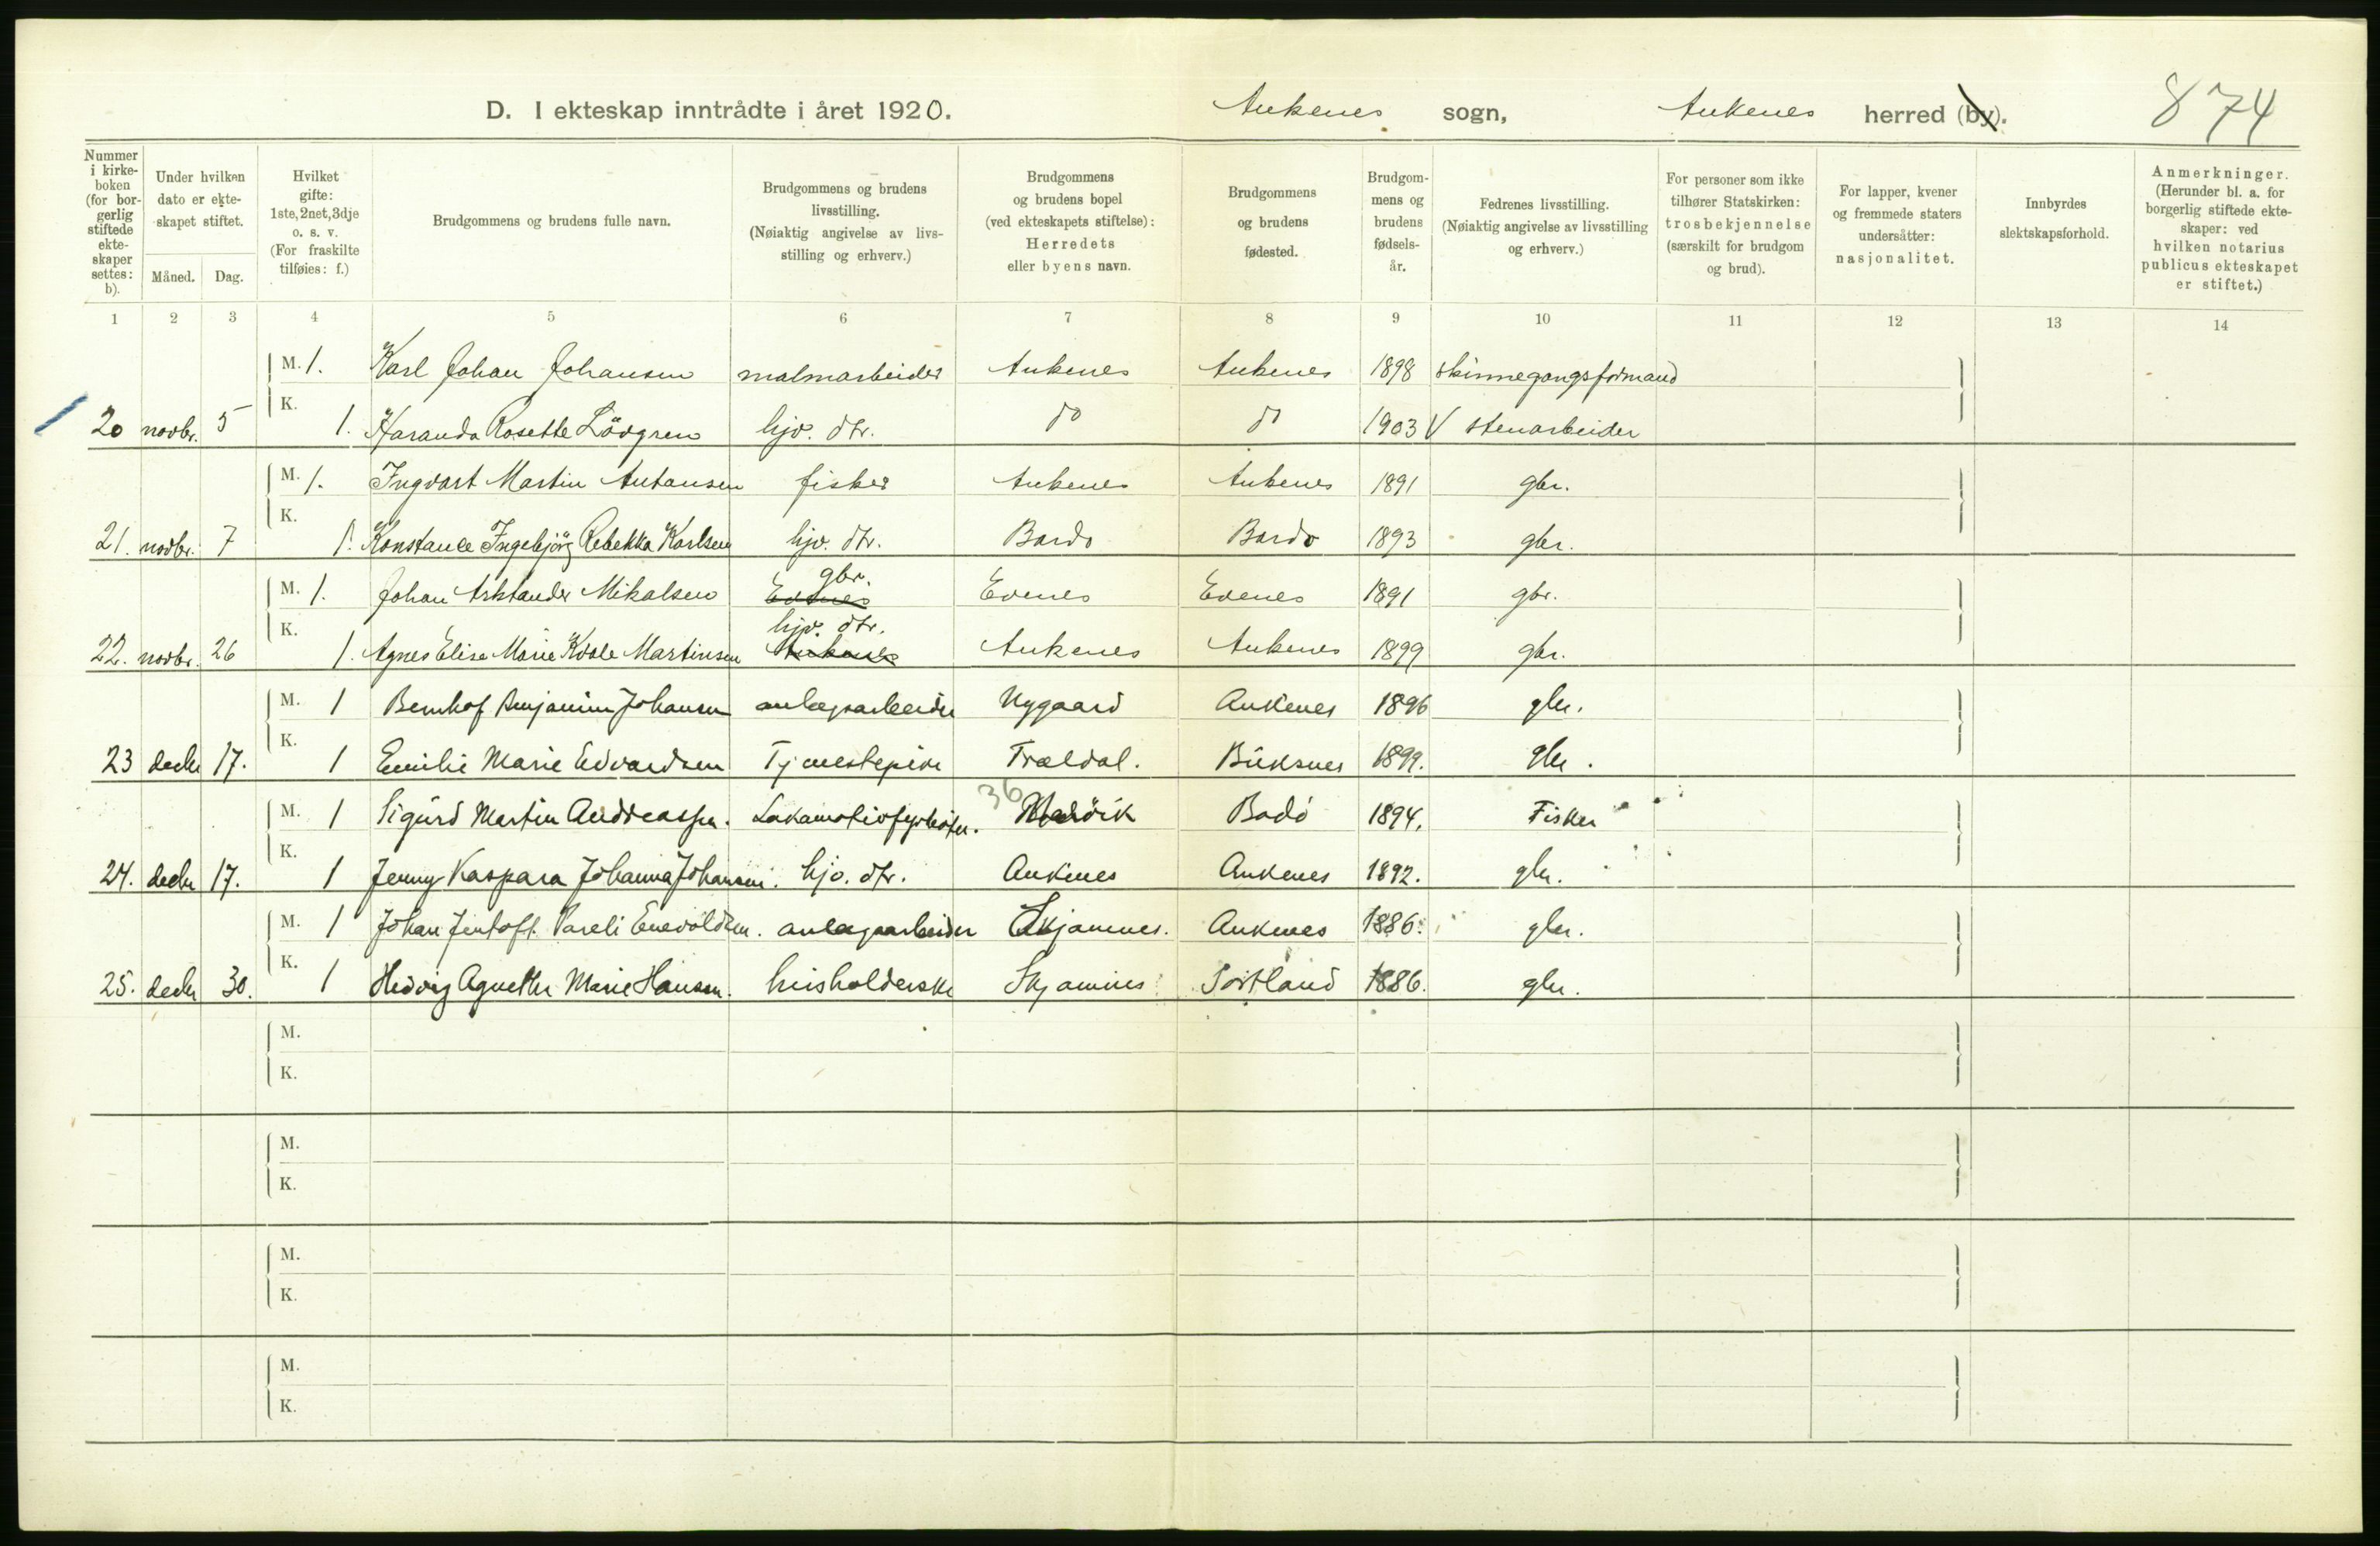 D. I ekteskap inntrådte i året 1920. Ankenes sogn, Ankenes herred (by). 874
Nummer i kirkeboken (for borgerlig stiftede ekteskaper settes: b).
Under hvilken dato er ekteskapet stiftet. Måned. Dag.
Hvilket gifte: 1ste, 2net, 3dje o. s. v. (For fraskilte tilføies: f.)
Brudgommens og brudens fulle navn.
Brudgommens og brudens livsstilling. (Nøiaktig angivelse av livsstilling og erhverv.)
Brudgommens og brudens bopel (ved ekteskapets stiftelse): Herredets eller byens navn.
Brudgommens og brudens fødested.
Brudgommens og brudens fødselsår.
Fedrenes livsstilling. (Nøiaktig angivelse av livsstilling og erhverv.)
For personer som ikke tilhører Statskirken: trosbekjennelse (særskilt for brudgom og brud).
For lapper, kvener og fremmede staters undersåtter: nasjonalitet.
Innbyrdes slektskapsforhold.
Anmerkninger. (Herunder bl. a. for borgerlig stiftede ekteskaper: ved hvilken notarius publicus ekteskapet er stiftet.)
1 2 3 4 5 6 7 8 9 10 11 12 13 14
M. 1. Karl Johan Johansen malmarbeider Ankenes Ankenes 1898 skinnegangsformand
20 novbr. 5 K. 1. Haranda Rosette Lövgren hjv. dtr. do do 1903 V stenarbeider
M. 1. Ingvart Martin Antonsen fisker Ankenes Ankenes 1891 gbr.
21. novbr. 7 K. 1. Konstance Ingebjörg Rebekka Karlsen hjv. dtr. Bardo Bardo 1893 gbr.
M. 1. Johan Arktander Mikalsen Evenes gbr. Evenes Evenes 1891 gbr.
22. novbr. 26 K. 1. Agnes Elise Marie Kvale Martinsen Ankenes hjv. dtr. Ankenes Ankenes 1899 gbr.
M. 1 Bernhof Benjamin Johansen anlegsarbeider Nygaard Ankenes 1896 gbr.
23 decbr 17. K. 1 Emilie Marie Edvardsen Tjenestepike Trældal. Buksnes 1899. gbr.
M. 1 Sigurd Martin Andreassen. Lokamotivfyrbøter. 36 Narvik Bodö 1894. Fisker
24. decbr 17. K. 1 Jenny Kaspara Johanna Johansen. hjv. dtr. Ankenes Ankenes 1892. gbr.
M. 1 Johan Jentoft Pareli Enevoldsen. anlegsarbeider Skjomnes. Ankenes 1886. gbr.
25. decbr 30. K. 1 Hedvig Agnethe Marie Hansen. husholderske Skjomnes Sortland 1886. gbr.
M.
K.
M.
K.
M.
K.
M.
K.